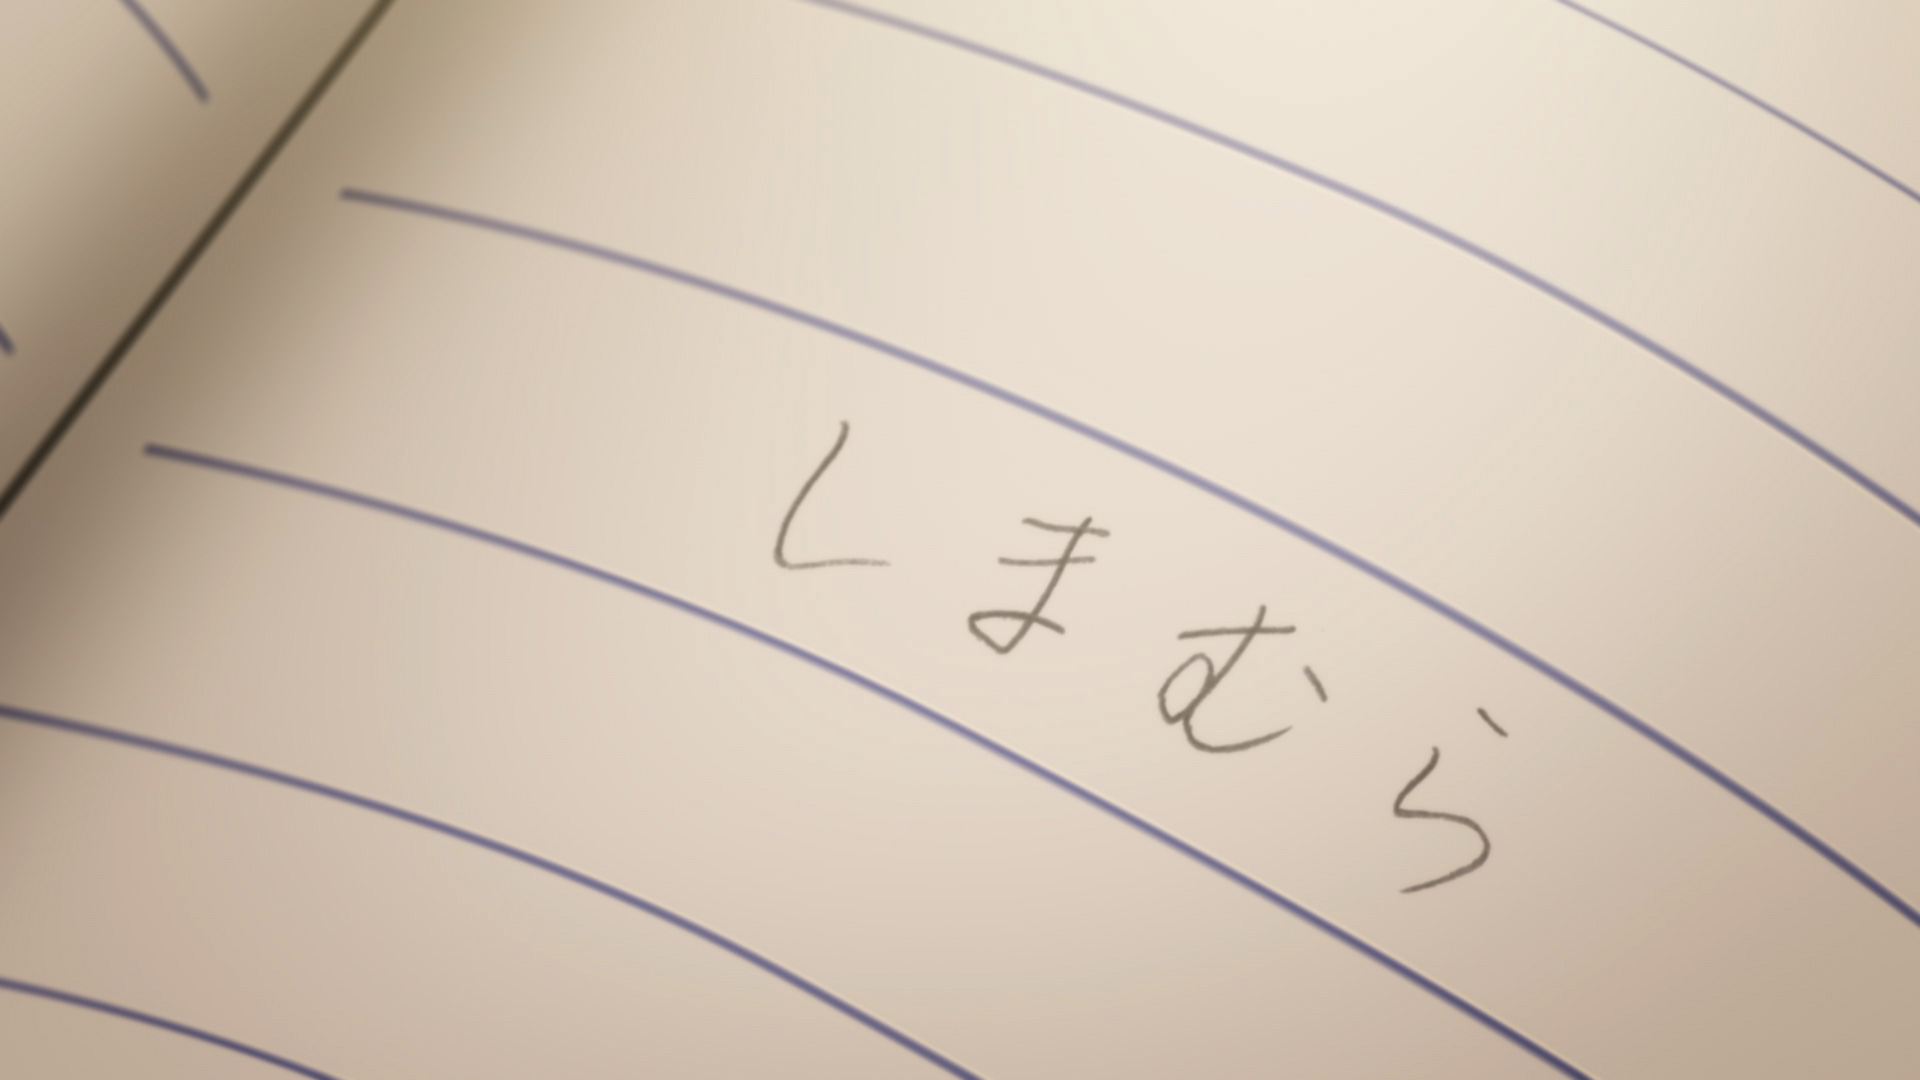 しまむら